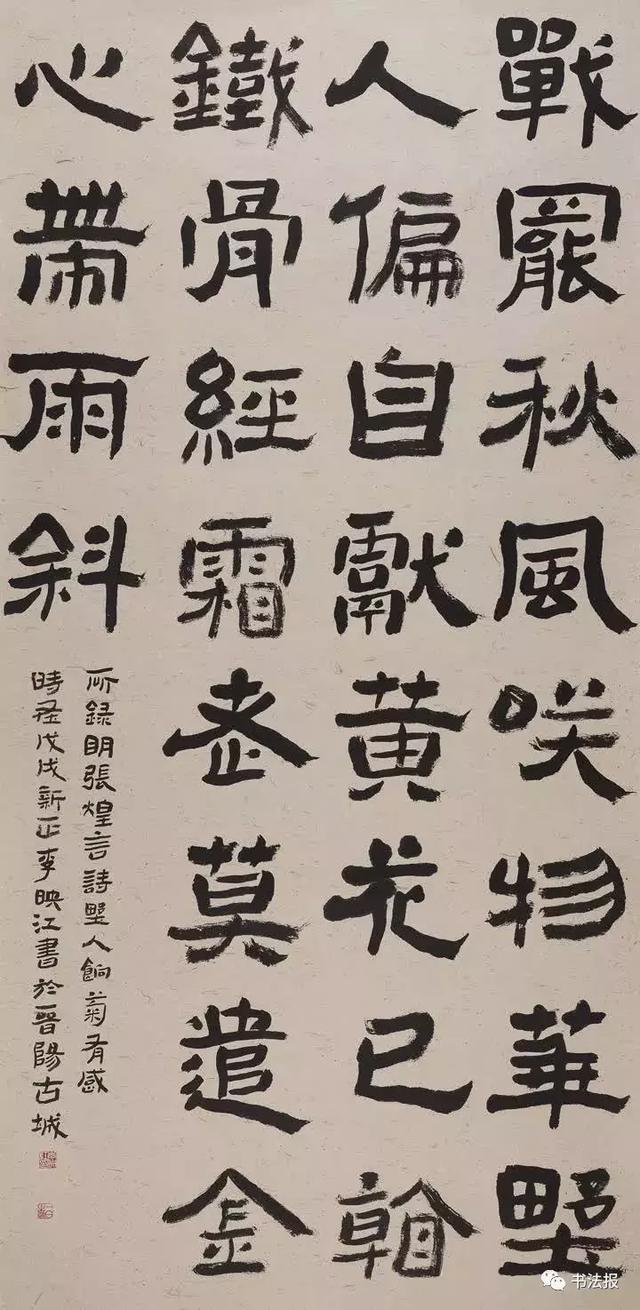 戰罷秋風咲物華野
人偏自獻黄花已看
鐵骨經霜老莫遣金
心帶雨斜
所録明張煌言詩野人餉菊有感
時在戊戌新正李映江書於晉陽古城
书法报